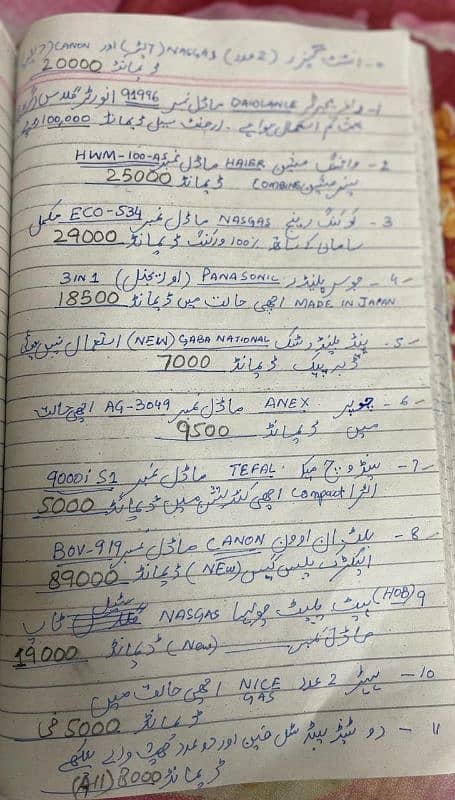 0- انسٹنٹ گیزر (2 عدد) NASGAS اور CANON
ڈیمانڈ 20000
1- ریفریجریٹر DAWLANCE ماڈل نمبر 91996 انورٹر گلاس ڈور
بہت کم استعمال ہوا ہے۔ ارجنٹ سیل ڈیمانڈ 100,000
2- واشنگ مشین HAIER ماڈل نمبر HWM-100-AS
سپنر مشین COMBINE ڈیمانڈ 25000
3- کوکنگ رینج NASGAS ماڈل نمبر ECO-534 مکمل
سامان کے ساتھ 100% ورکنگ ڈیمانڈ 29000
4- جوسر بلینڈر PANASONIC (اوریجنل) 3IN1
MADE IN JAPAN اچھی حالت میں ڈیمانڈ 18500
5- ہینڈ بلینڈر GABA NATIONAL (NEW) استعمال نہیں ہوئی
ڈبہ پیک ڈیمانڈ 7000
6- چوپر ANEX ماڈل نمبر AG-3049 اچھی حالت
میں ڈیمانڈ 9500
7- سینڈوچ میکر TEFAL ماڈل نمبر 9000i S1
الٹرا Compact اچھی کنڈیشن میں ڈیمانڈ 5000
8- بلٹ ان اوون CANON ماڈل نمبر BOV-919
الیکٹرک پلس گیس (NEW) ڈیمانڈ 89000
9 (HOB) ہیٹ پلیٹ چولہا NASGAS سٹیل ٹاپ
ماڈل نمبر ــــــ (New) ڈیمانڈ 19000
10- ہیٹر 2 عدد NICE GAS اچھی حالت میں
ڈیمانڈ 5000 فی
11- دو عدد پیڈسٹل فین اور دو عدد چھت والے پنکھے
ڈیمانڈ 8000 (All)